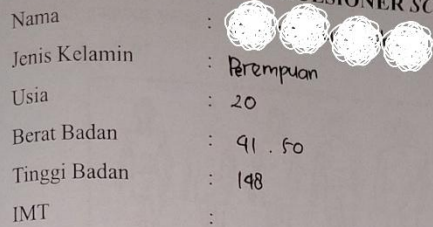 SIONER SC
Nama :
Jenis Kelamin : Perempuan
Usia : 20
Berat Badan : 91.50
Tinggi Badan : 148
IMT :